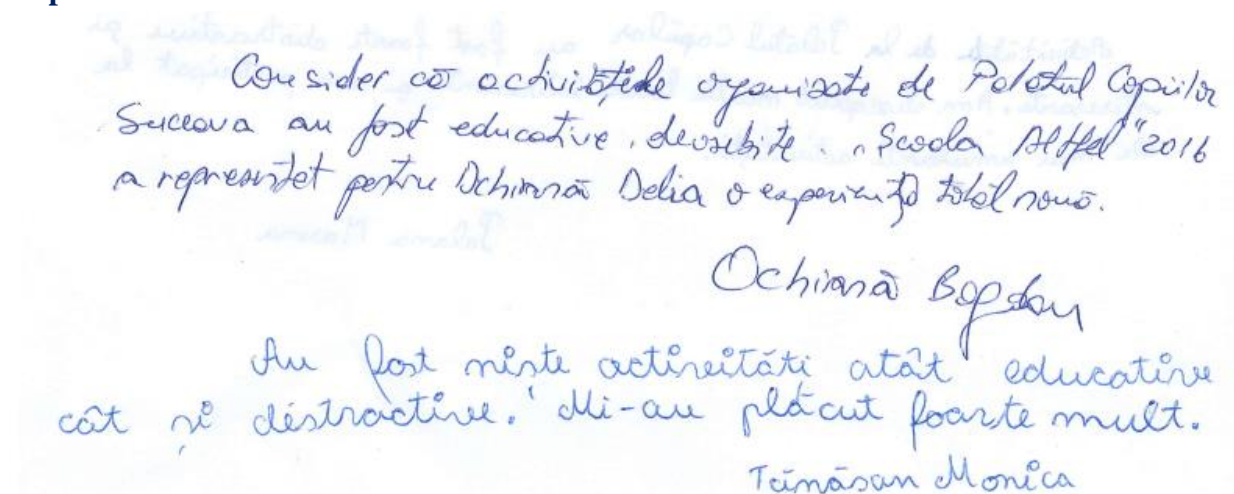 Consider că activitățile organizate de Palatul Copiilor
Suceava au fost educative, deosebite. „Scoala Altfel" 2016
a reprezentat pentru Ochiană Delia o experiență total nouă.
Ochiană Bogdan
Au fost niște activități atât educative
cât și distractive. Mi-au plăcut foarte mult.
Tănăsan Monica